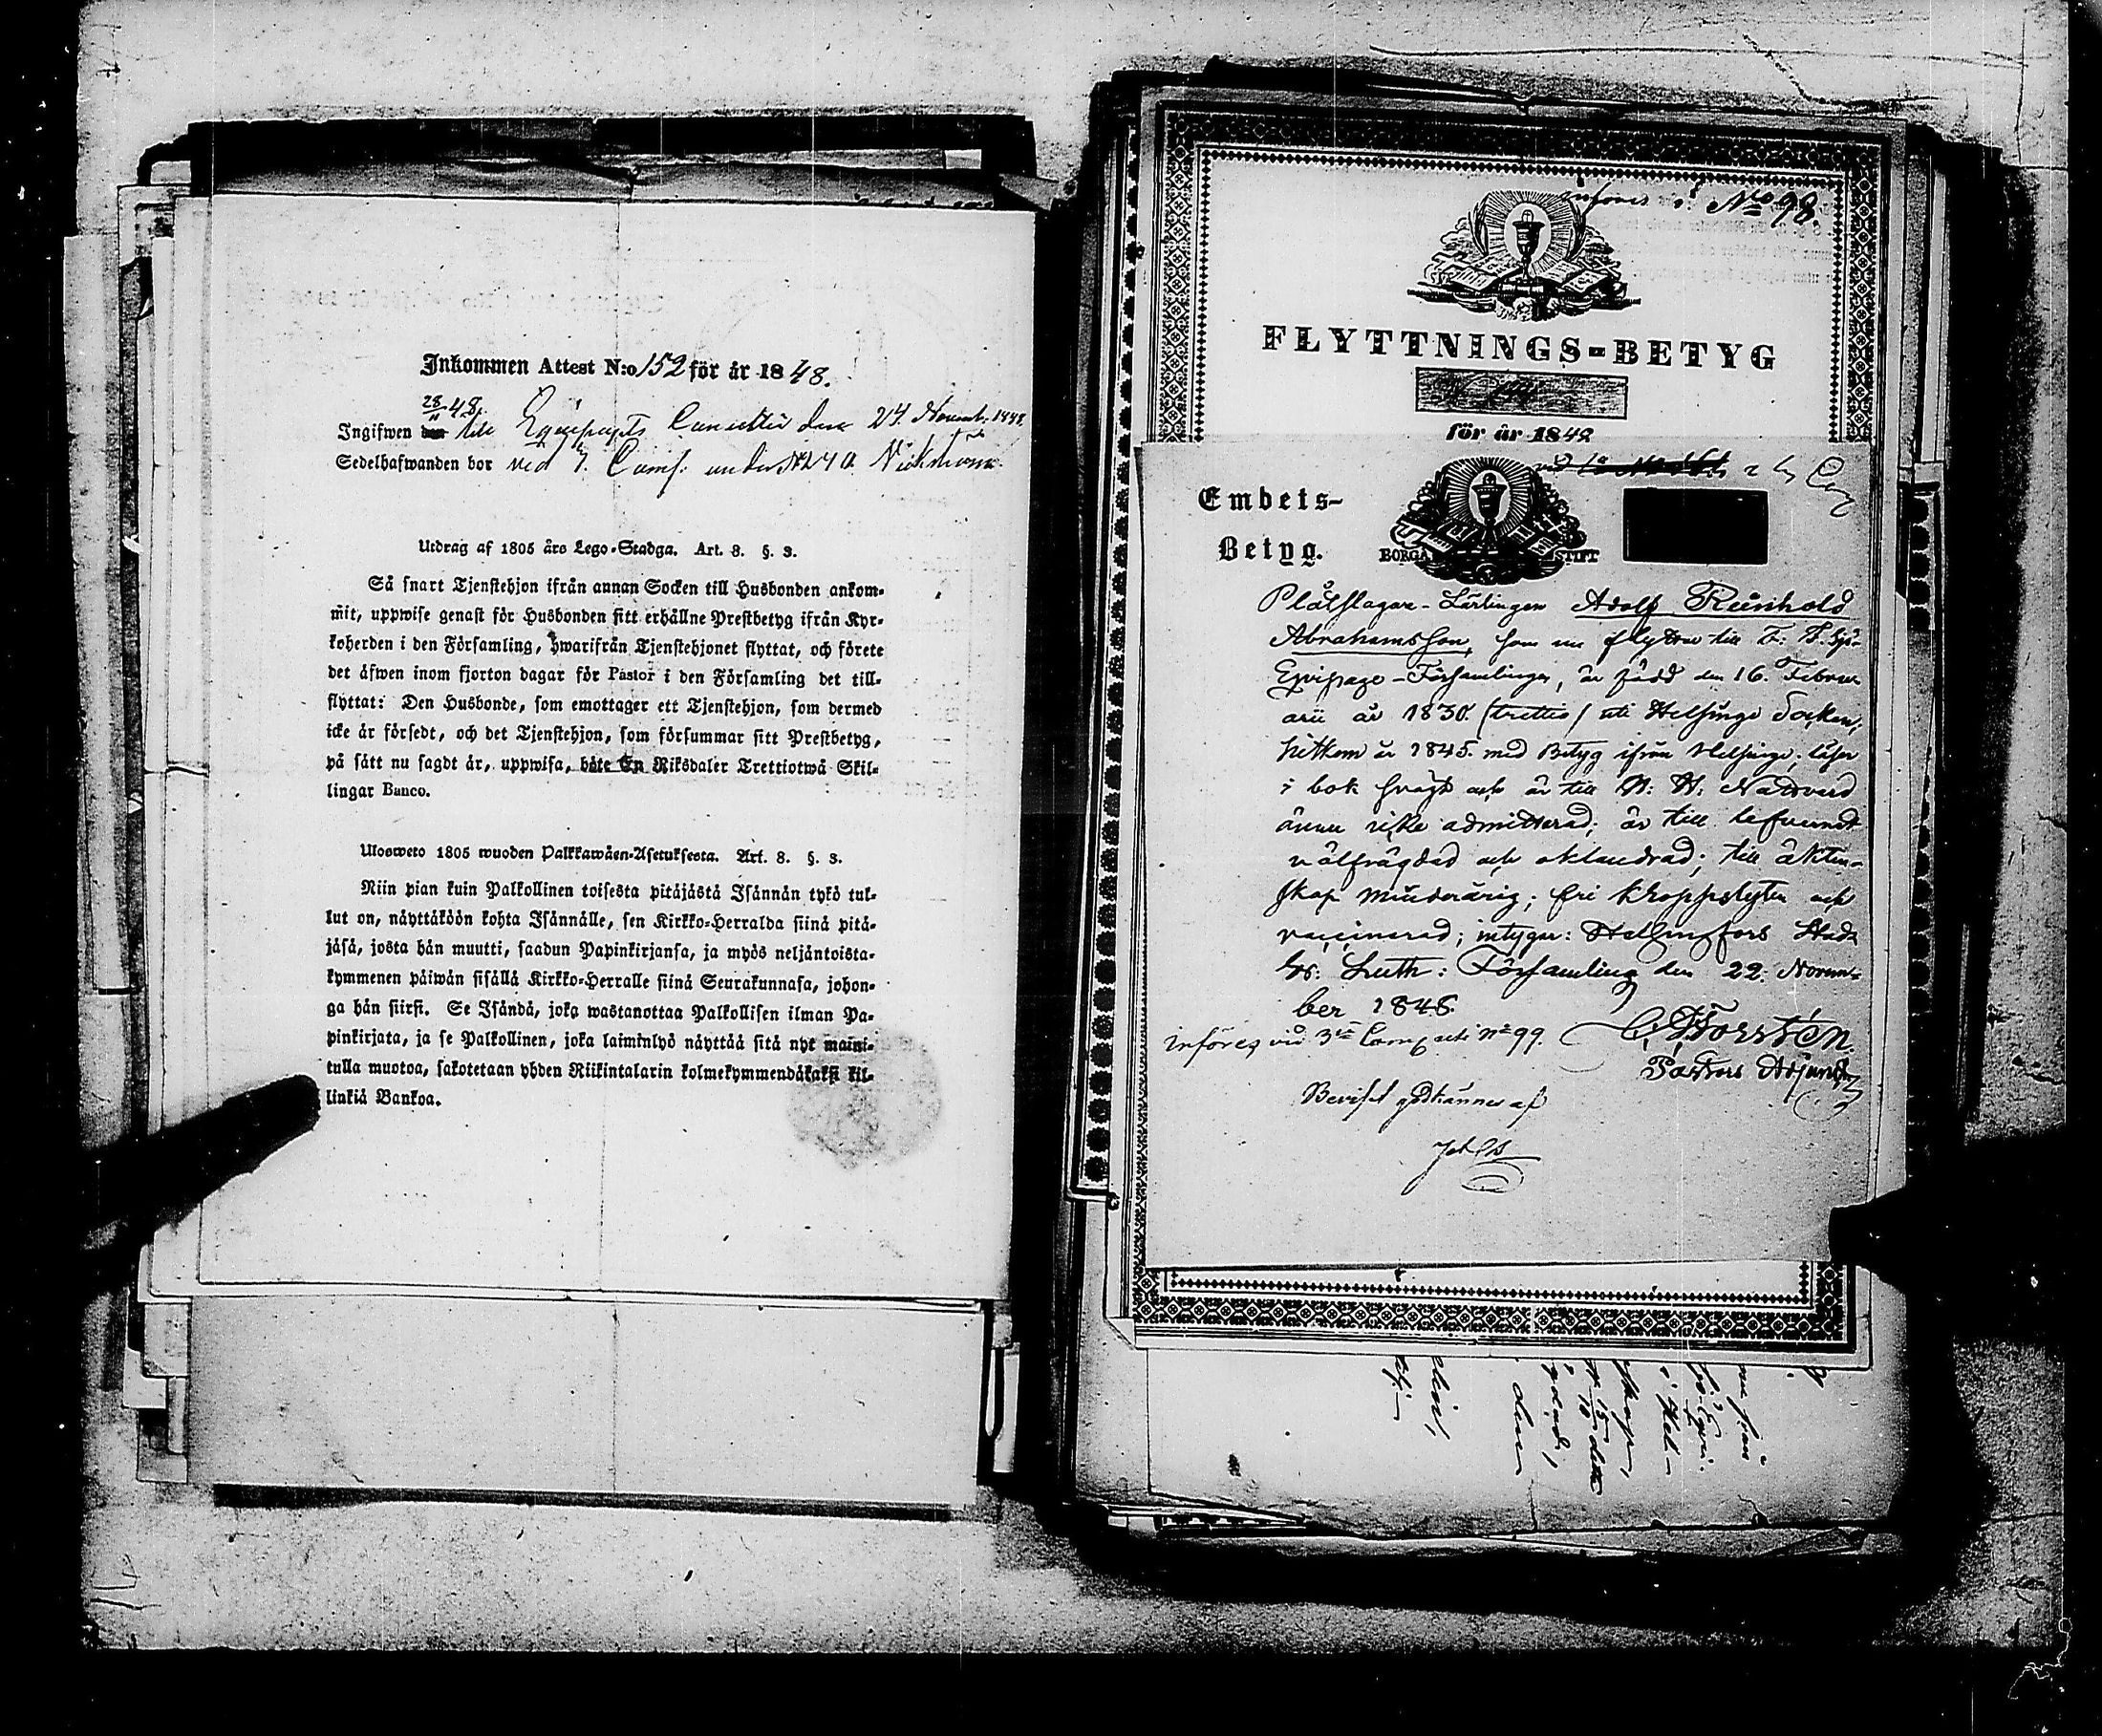 Inkommen Attest N:o 152 för år 1848.
28/11 48.
Ingifwen den till Equipagets Cancellie den 24 Novemb. 1848.
Sedelhafwanden bor ved 7. Comp. under N 240.
Utdrag af 1805 års Lego-Stadga. Art. 8. §. 3.
Så snart Tjenstehjon ifrån annan Socken till Husbonden ankom-
mit, uppwise genast för Husbonden sitt erhållne Prestbetyg ifrån Kyr-
koherden i den Församling, hwarifrån Tjenstehjonet flyttat, och förete
det äfwen inom fjorton dagar för Pastor i den Församling det till-
flyttat: Den Husbonde, som emottager ett Tjenstehjon, som dermed
icke är försedt, och det Tjenstehjon, som försummar sitt Prestbetyg,
på sätt nu sagdt är, uppwisa, böte En Riksdaler Trettiotwå Skil-
lingar Banco.
Ulosweto 1805 wuoden Palkkawäen-Asetuksesta. Art. 8. §. 3.
Niin pian kuin Palkollinen toisesta pitäjästä Isännän tykö tul-
lut on, näyttäköön kohta Isännälle, sen Kirkko-Herralda siinä pitä-
jäsä, josta hän muutti, saadun Papinkirjansa, ja myös neljäntoista-
kymmenen päiwän sisällä Kirkko-Herralle siinä Seurakunnasa, johon-
ga hän siirsi. Se Isändä, joka wastanottaa Palkollisen ilman Pa-
pinkirjata, ja se Palkollinen, joka laiminlyö näyttää sitä nyt maini-
tulla muotoa, sakotetaan yhden Riikintalarin kolmekymmendäkaksi kil-
linkiä Bankoa.
införes i N:o 98.
FLYTTNINGS-BETYG
för år 1848
Embets-
Betyg.
BORGÅ STIFT
Plåtslagare-Lärlingen Adolf Reinhold
Abrahamsson, som nu flyttar till F: F: Sjö-
Eqvipage-Församlingen, är född den 16. Febru-
arii år 1830. (trettio) uti Helsinge Socken,
hitkom år 1845. med Betyg ifrån Helsinge; läser
i bok svagt och är till H: H: Nattvard
ännu icke admitterad; är till lefvernet
välfrägdad och oklandrad; till äkten-
skap minderårig; fri kroppslyten och
vaccinerad; intygar: Helsingfors Stads
Sv: Luth: Församling den 22. Novem-
ber 1848.
införes vid 3:e Comp uti N:o 99.
C. Forstén.
Pastors Adjunct
Beviset godkännes af